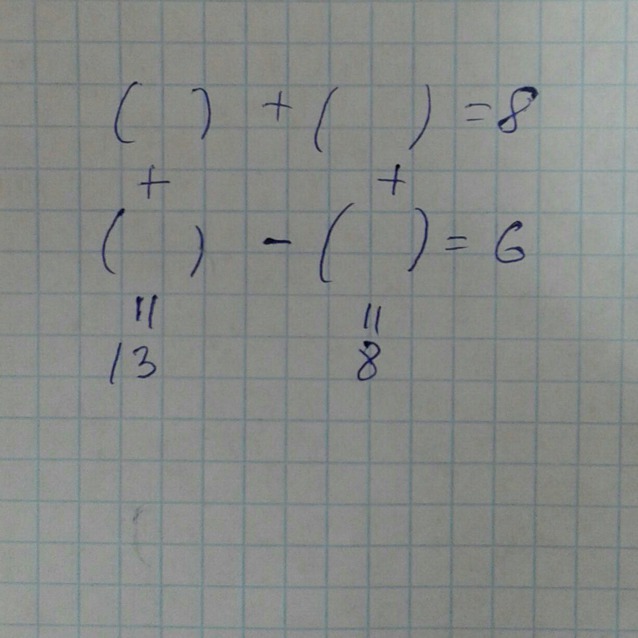 ( ) + ( ) = 8
+ +
( ) - ( ) = 6
॥ ॥
13 8